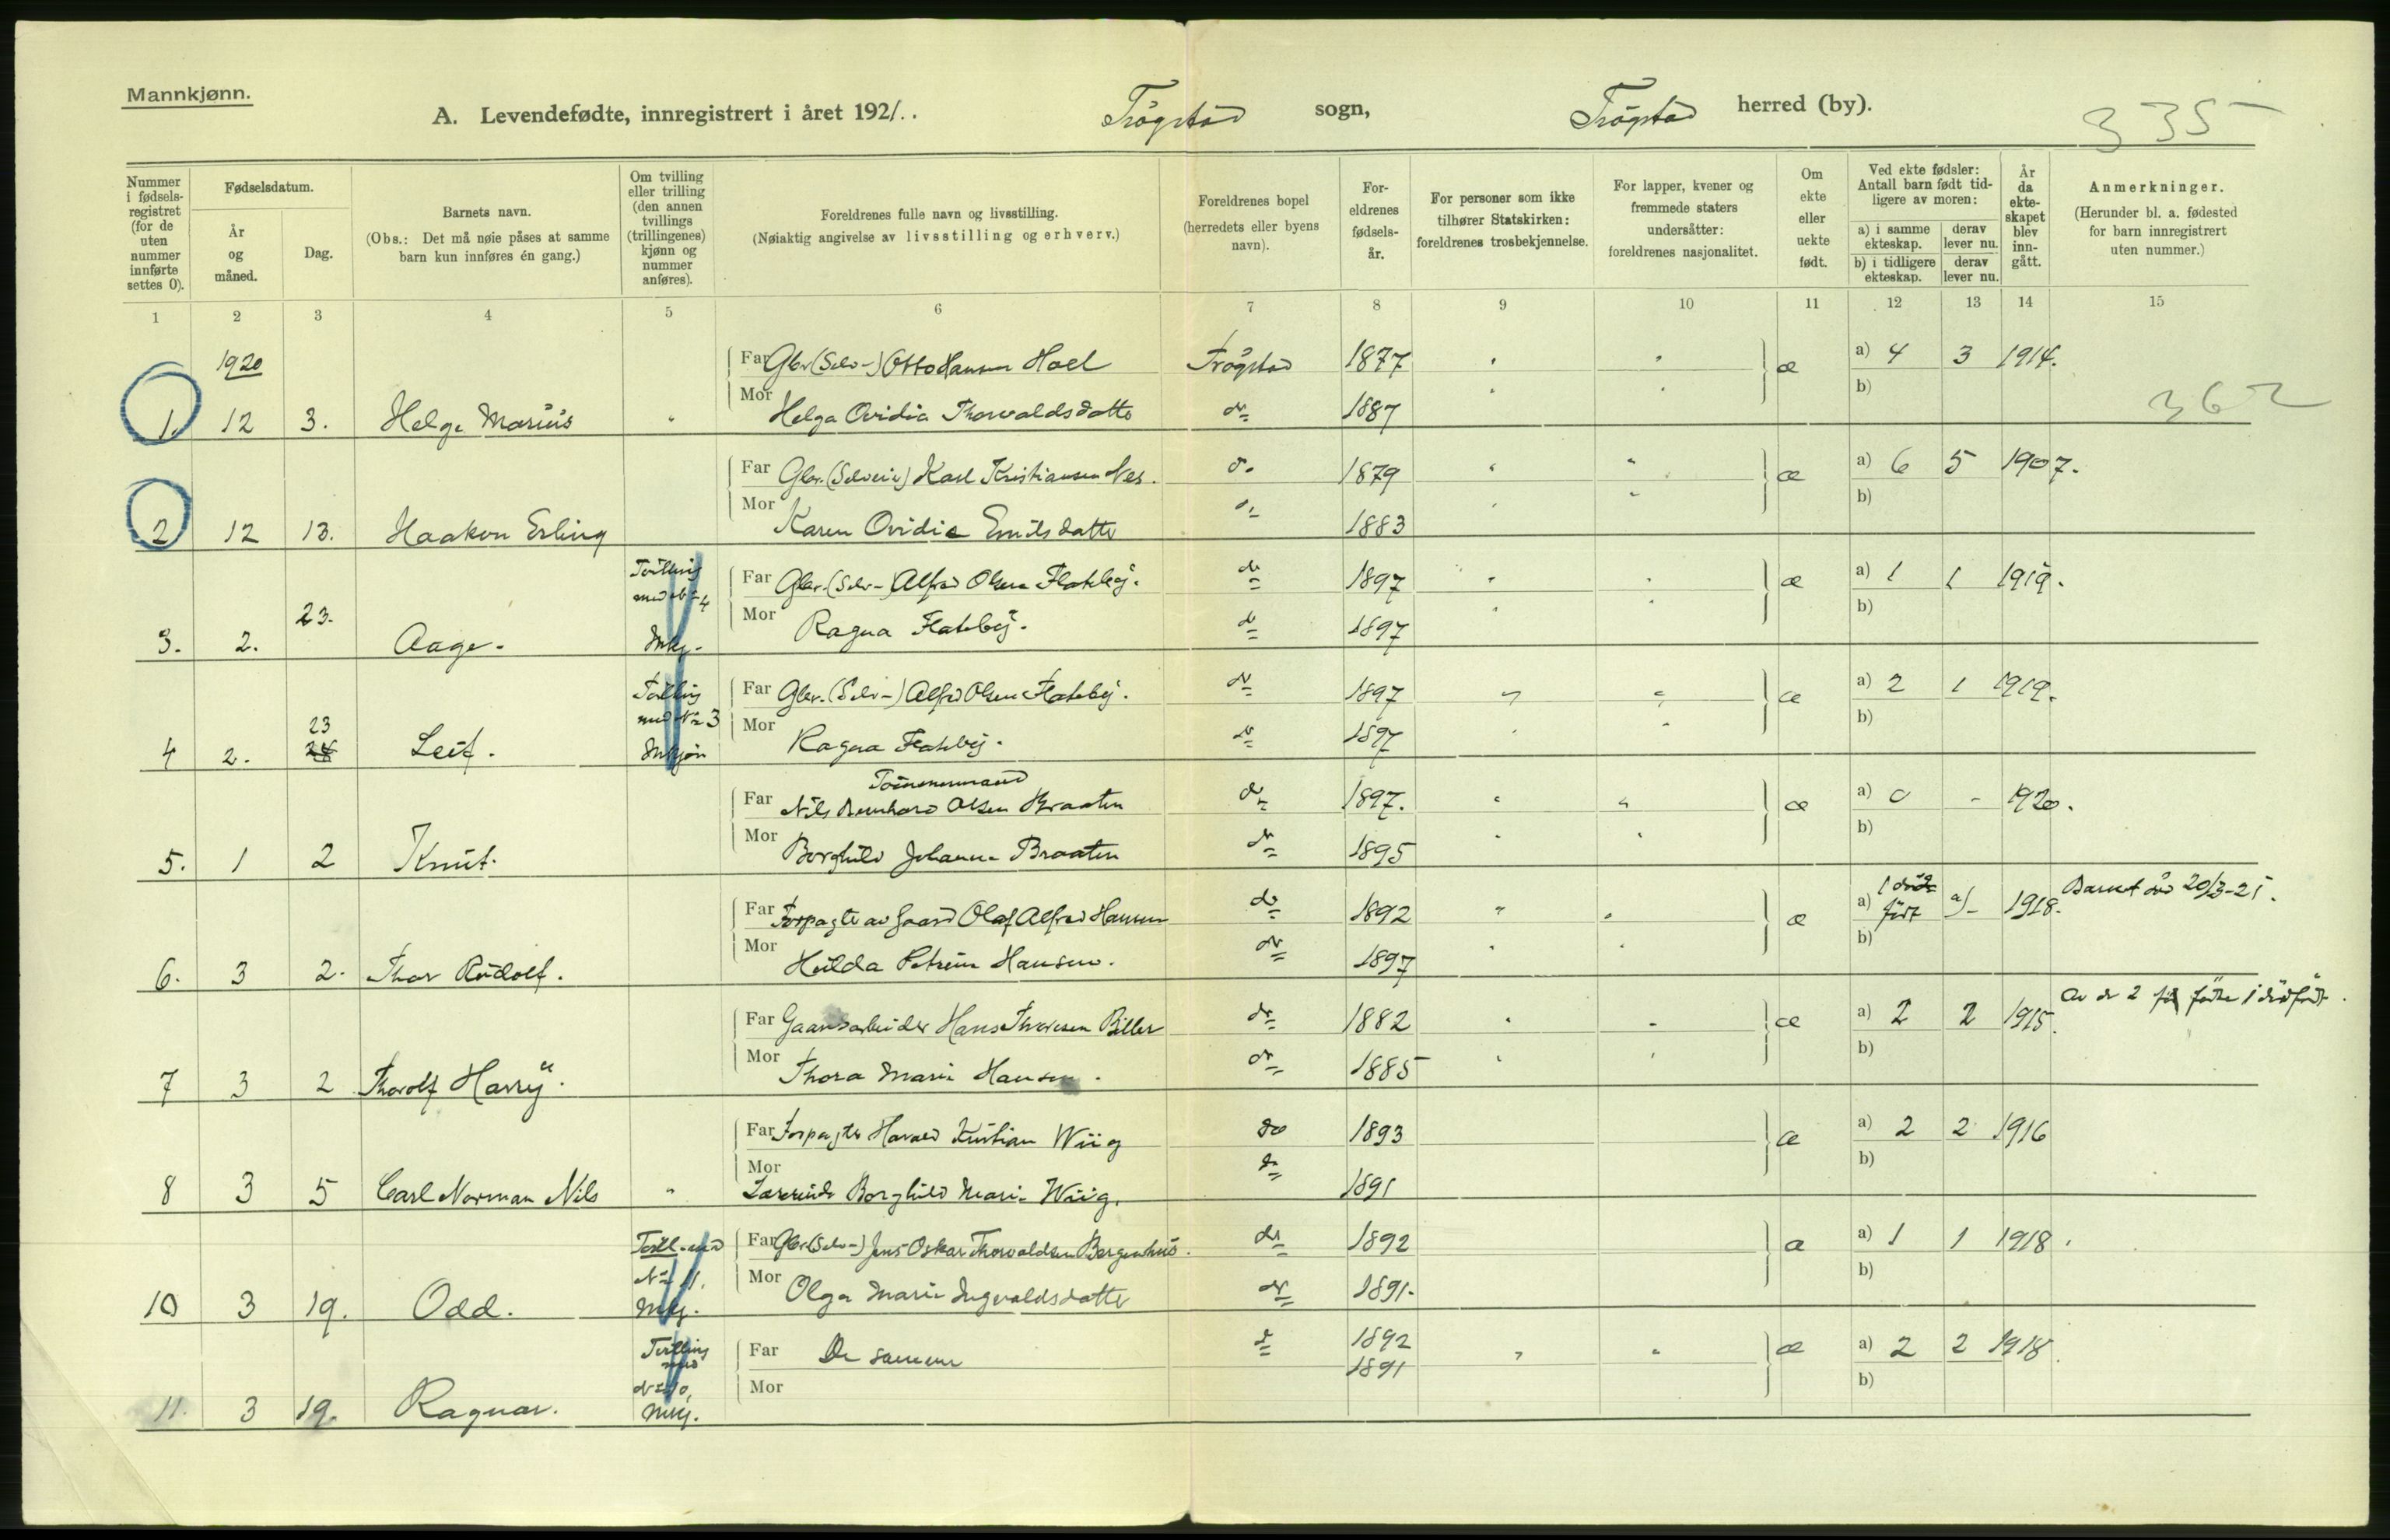 Mannkjønn.
A. Levendefødte, innregistrert i året 1921.. Trögstad sogn, Trögstad herred (by). 335
Nummer i fødsels-registret (for de uten nummer innførte settes 0).
Fødselsdatum.
År og måned.
Dag.
Barnets navn.
(Obs.: Det må nøie påses at samme barn kun innføres én gang.)
Om tvilling eller trilling (den annen tvillings (trillingenes) kjønn og nummer anføres).
Foreldrenes fulle navn og livsstilling.
(Nøiaktig angivelse av livsstilling og erhverv.)
Foreldrenes bopel (herredets eller byens navn).
For-eldrenes fødsels-år.
For personer som ikke tilhører Statskirken: foreldrenes trosbekjennelse.
For lapper, kvener og fremmede staters undersåtter: foreldrenes nasjonalitet.
Om ekte eller uekte født.
Ved ekte fødsler: Antall barn født tid-ligere av moren:
a) i samme ekteskap. derav lever nu.
b) i tidligere ekteskap. derav lever nu.
År da ekte-skapet blev inn-gått.
Anmerkninger.
(Herunder bl. a. fødested for barn innregistrert uten nummer.)
1 2 3 4 5 6 7 8 9 10 11 12 13 14 15
1920
Far Gbr (Selv-) Otto Hansen Hoel Trögstad 1877 " " æ a) 4 3 1914.
Mor Helga Ovidia Thorvaldsdatter do 1887 " " b) 362
1. 12 3. Helge Marius "
Far Gbr. (Selveier) Karl Kristiansen Nes. do 1879 " " æ a) 6 5 1907.
Mor Karen Ovidia Emilsdatter do 1883 b)
2 12 13. Haakon Erling
Tvilling med No 4 Mkj.
Far Gbr. (Selv-) Alfred Olsen Flateby. do 1897 " " æ a) 1 1 1919.
Mor Ragna Flateby. do 1897 b)
3. 2. 23. Aage.
Tvilling med No 3 Mkjön
Far Gbr. (Selv-) Alfred Olsen Flateby. do 1897 " " æ a) 2 1 1919.
Mor Ragna Flateby. do 1897 b)
4 2. 23 24 Leif.
Tömmermand
Far Nils Bernhard Olsen Braaten do 1897. " " æ a) 0 - 1920.
Mor Borghild Johanne Braaten do 1895 b)
5. 1 2 Knut.
Far Forpagter av Gaard Olaf Alfred Hansen do 1892 " " æ a) 1 död født a) - 1918. Barnet död 20/3-21.
Mor Hilda Petrine Hansen. do 1897 b)
6. 3 2. Thor Rudolf.
Far Gaardsarbeider Hans Thoresen Biller do 1882 " " æ a) 2 2 1915. Av de 2 födte 1 dödfödt.
Mor Thora Marie Hansen. do 1885 b)
7 3 2 Thorolf Harry.
Far Forpagter Harald Kristian Wiig do 1893 æ a) 2 2 1916
Mor Lærerinde Borghild Marie Wiig. do 1891 b)
8 3 5 Carl Norman Nils "
Tvill. med No 11. Mkj.
Far Gbr (Selv-) Jens Oskar Thorvaldsen Bergenhus. do 1892 æ a) 1 1 1918.
Mor Olga Marie Ingvaldsdatter do 1891. b)
10 3 19. Odd.
Tvilling med No 10. Mkj.
Far De samme do 1892 " " æ a) 2 2 1918.
Mor 1891 b)
11. 3 19. Ragnar.